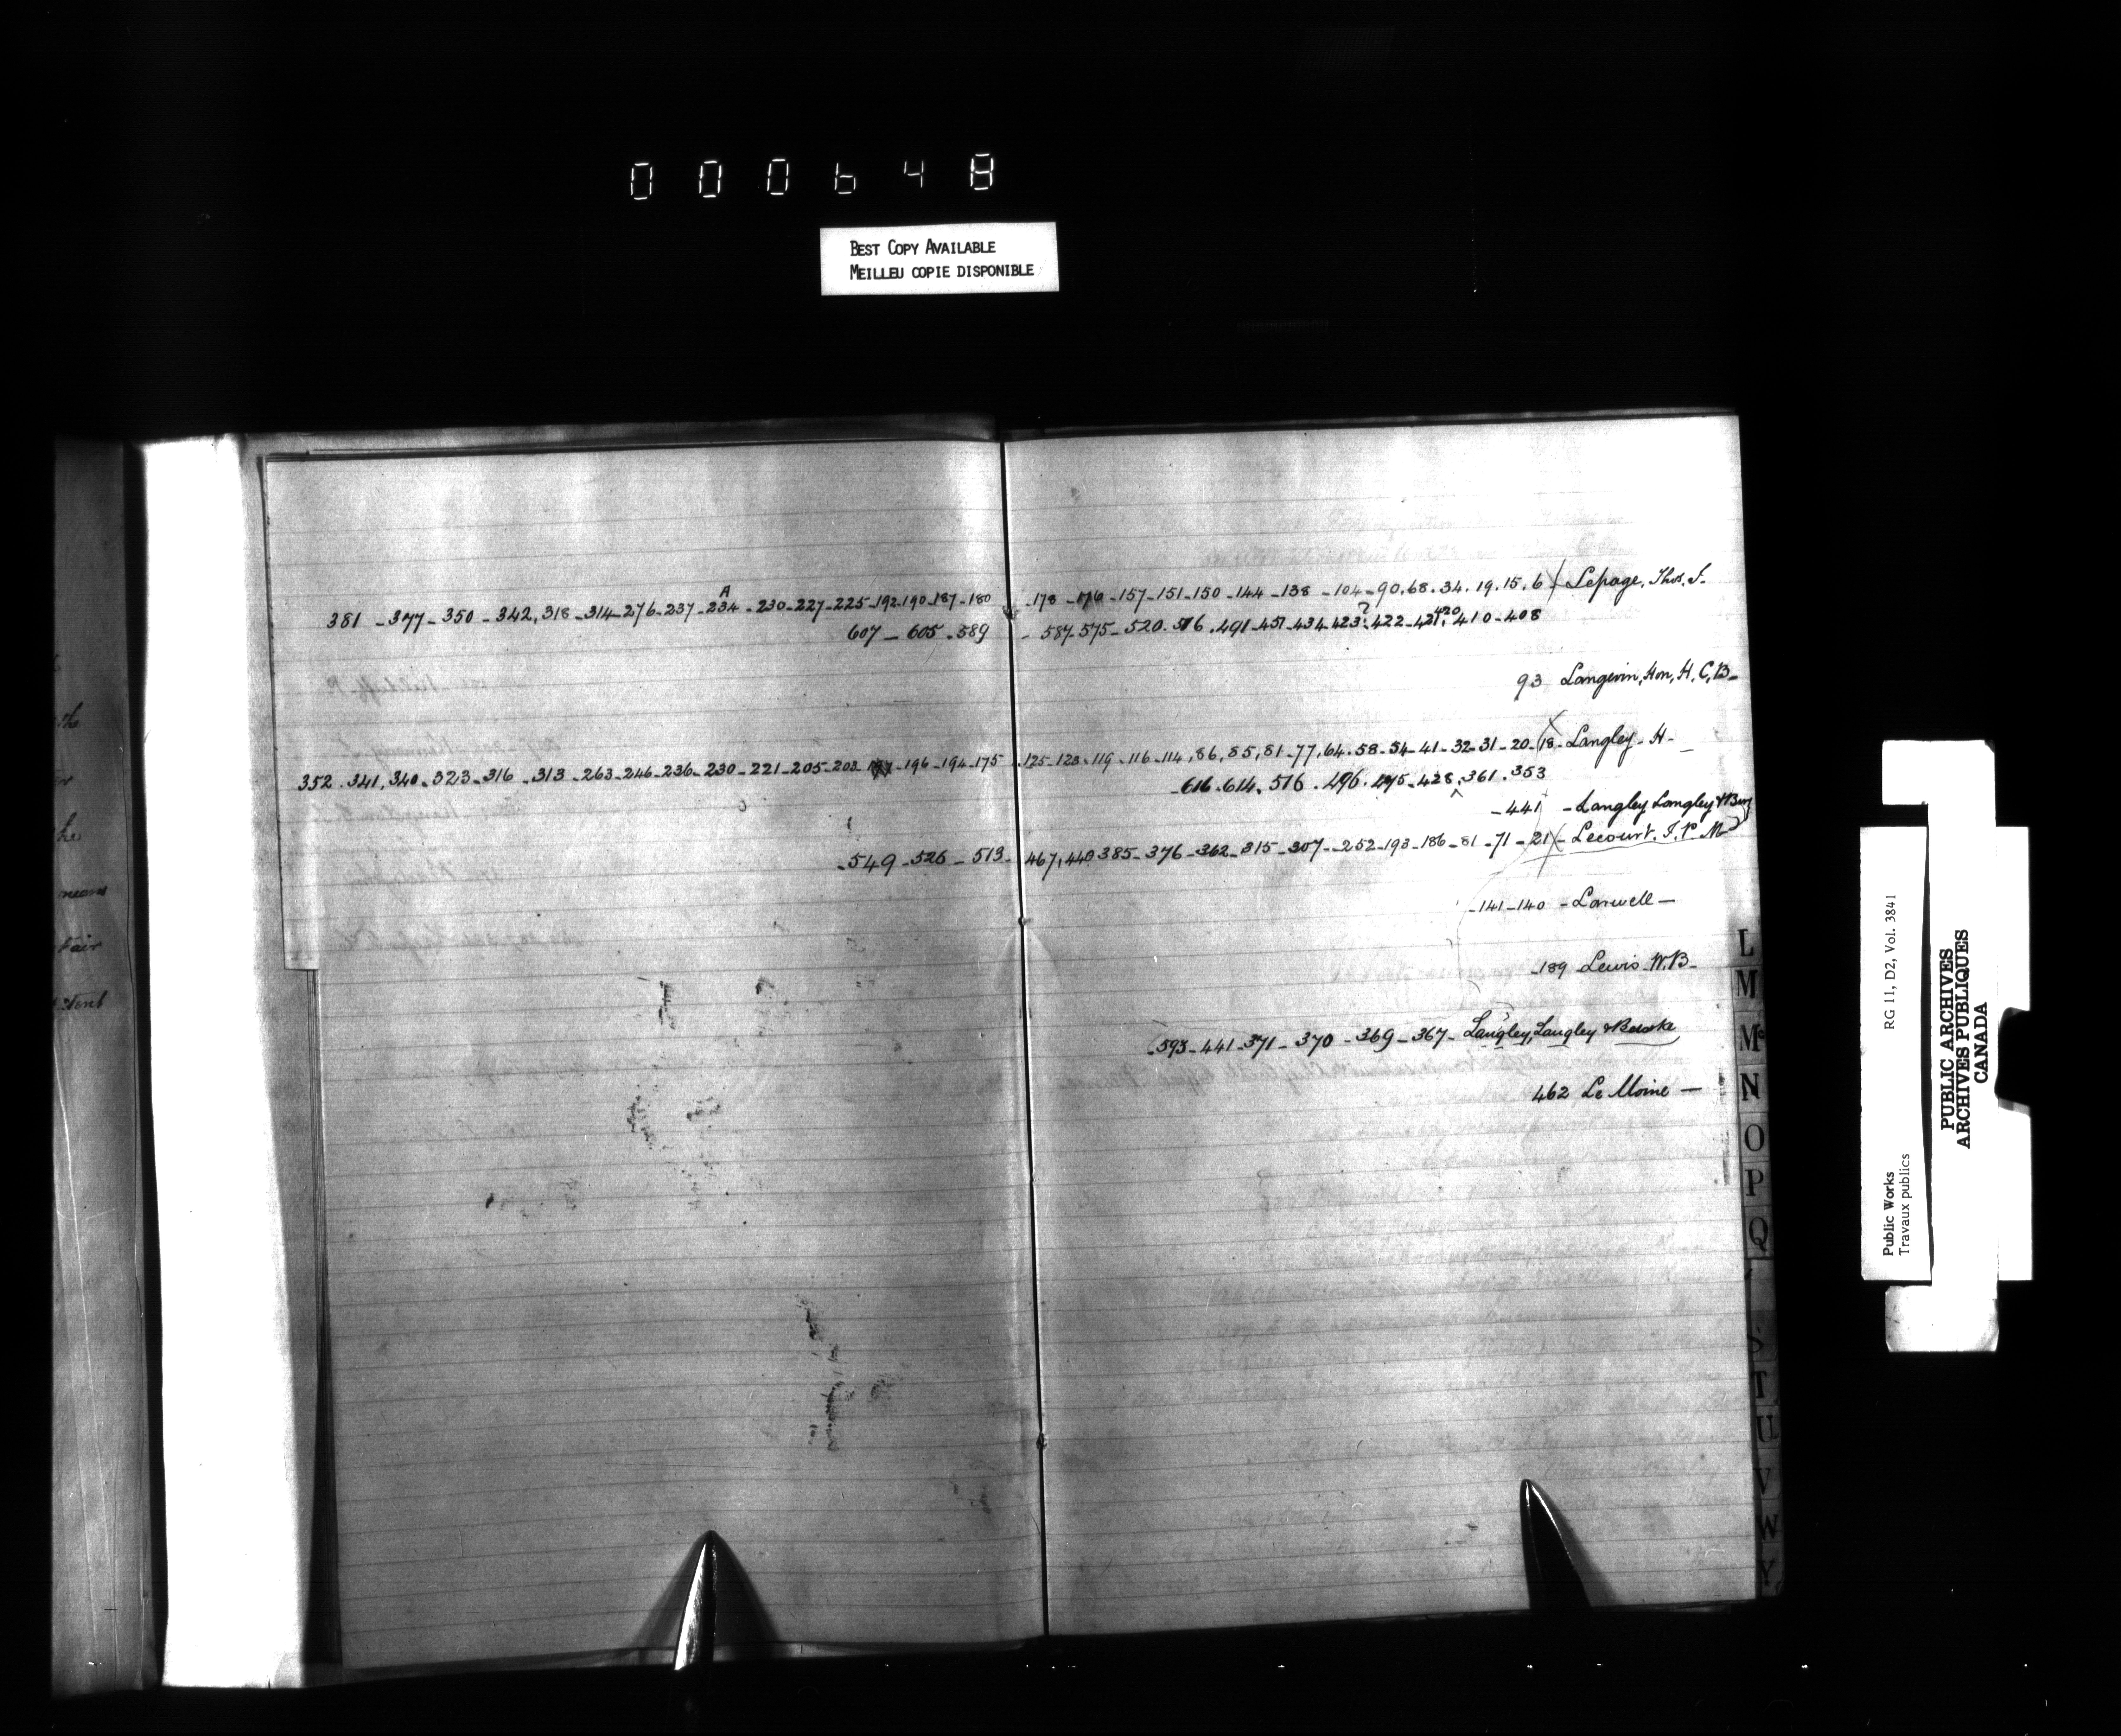 000648
BEST COPY AVAILABLE
MEILLEU COPIE DISPONIBLE
381 - 377 - 350 - 342, 318 - 314 - 276 - 237 - 234 A - 230 - 227 - 225 - 192 - 190 - 187 - 180 - 178 - 176 - 157 - 151 - 150 - 144 - 138 - 104 - 90, 68. 34. 19. 15. 6 - Lepage, Thos. J.
607 - 605 - 589 - 587 - 575 - 520. 516. 491 - 457 - 434 - 423? - 422 - 421, 420 410 - 408
93 Langevin, Hon, H, C, B -
352. 341, 340 - 323 - 316 - 313 - 263 - 246 - 236 - 230 - 221 - 205 - 203 - 196 - 194 - 175 - 125 - 123 - 119 - 116 - 114, 86, 85, 81 - 77, 64. 58 - 54 - 41 - 32 - 31 - 20 - 18 - Langley - H -
- 616. 614, 516. 496. 495 - 428, 361. 353
- 441 - Langley Langley & Bur
- 549 - 526 - 513 - 467, 440 385 - 376 - 362 - 315 - 307 - 252 - 193 - 186 - 81 - 71 - 21 - Lecourt. J. P. M
- 141 - 140 - Larwell -
- 189 Lewis W. B -
593 - 441 - 371 - 370 - 369 - 367 - Langley, Langley & Burke
462 Le Moine -
L
M
Mc
N
O
P
Q
S
T
U
V
W
Y
RG 11, D2, Vol. 3841
Public Works
Travaux publics
PUBLIC ARCHIVES
ARCHIVES PUBLIQUES
CANADA